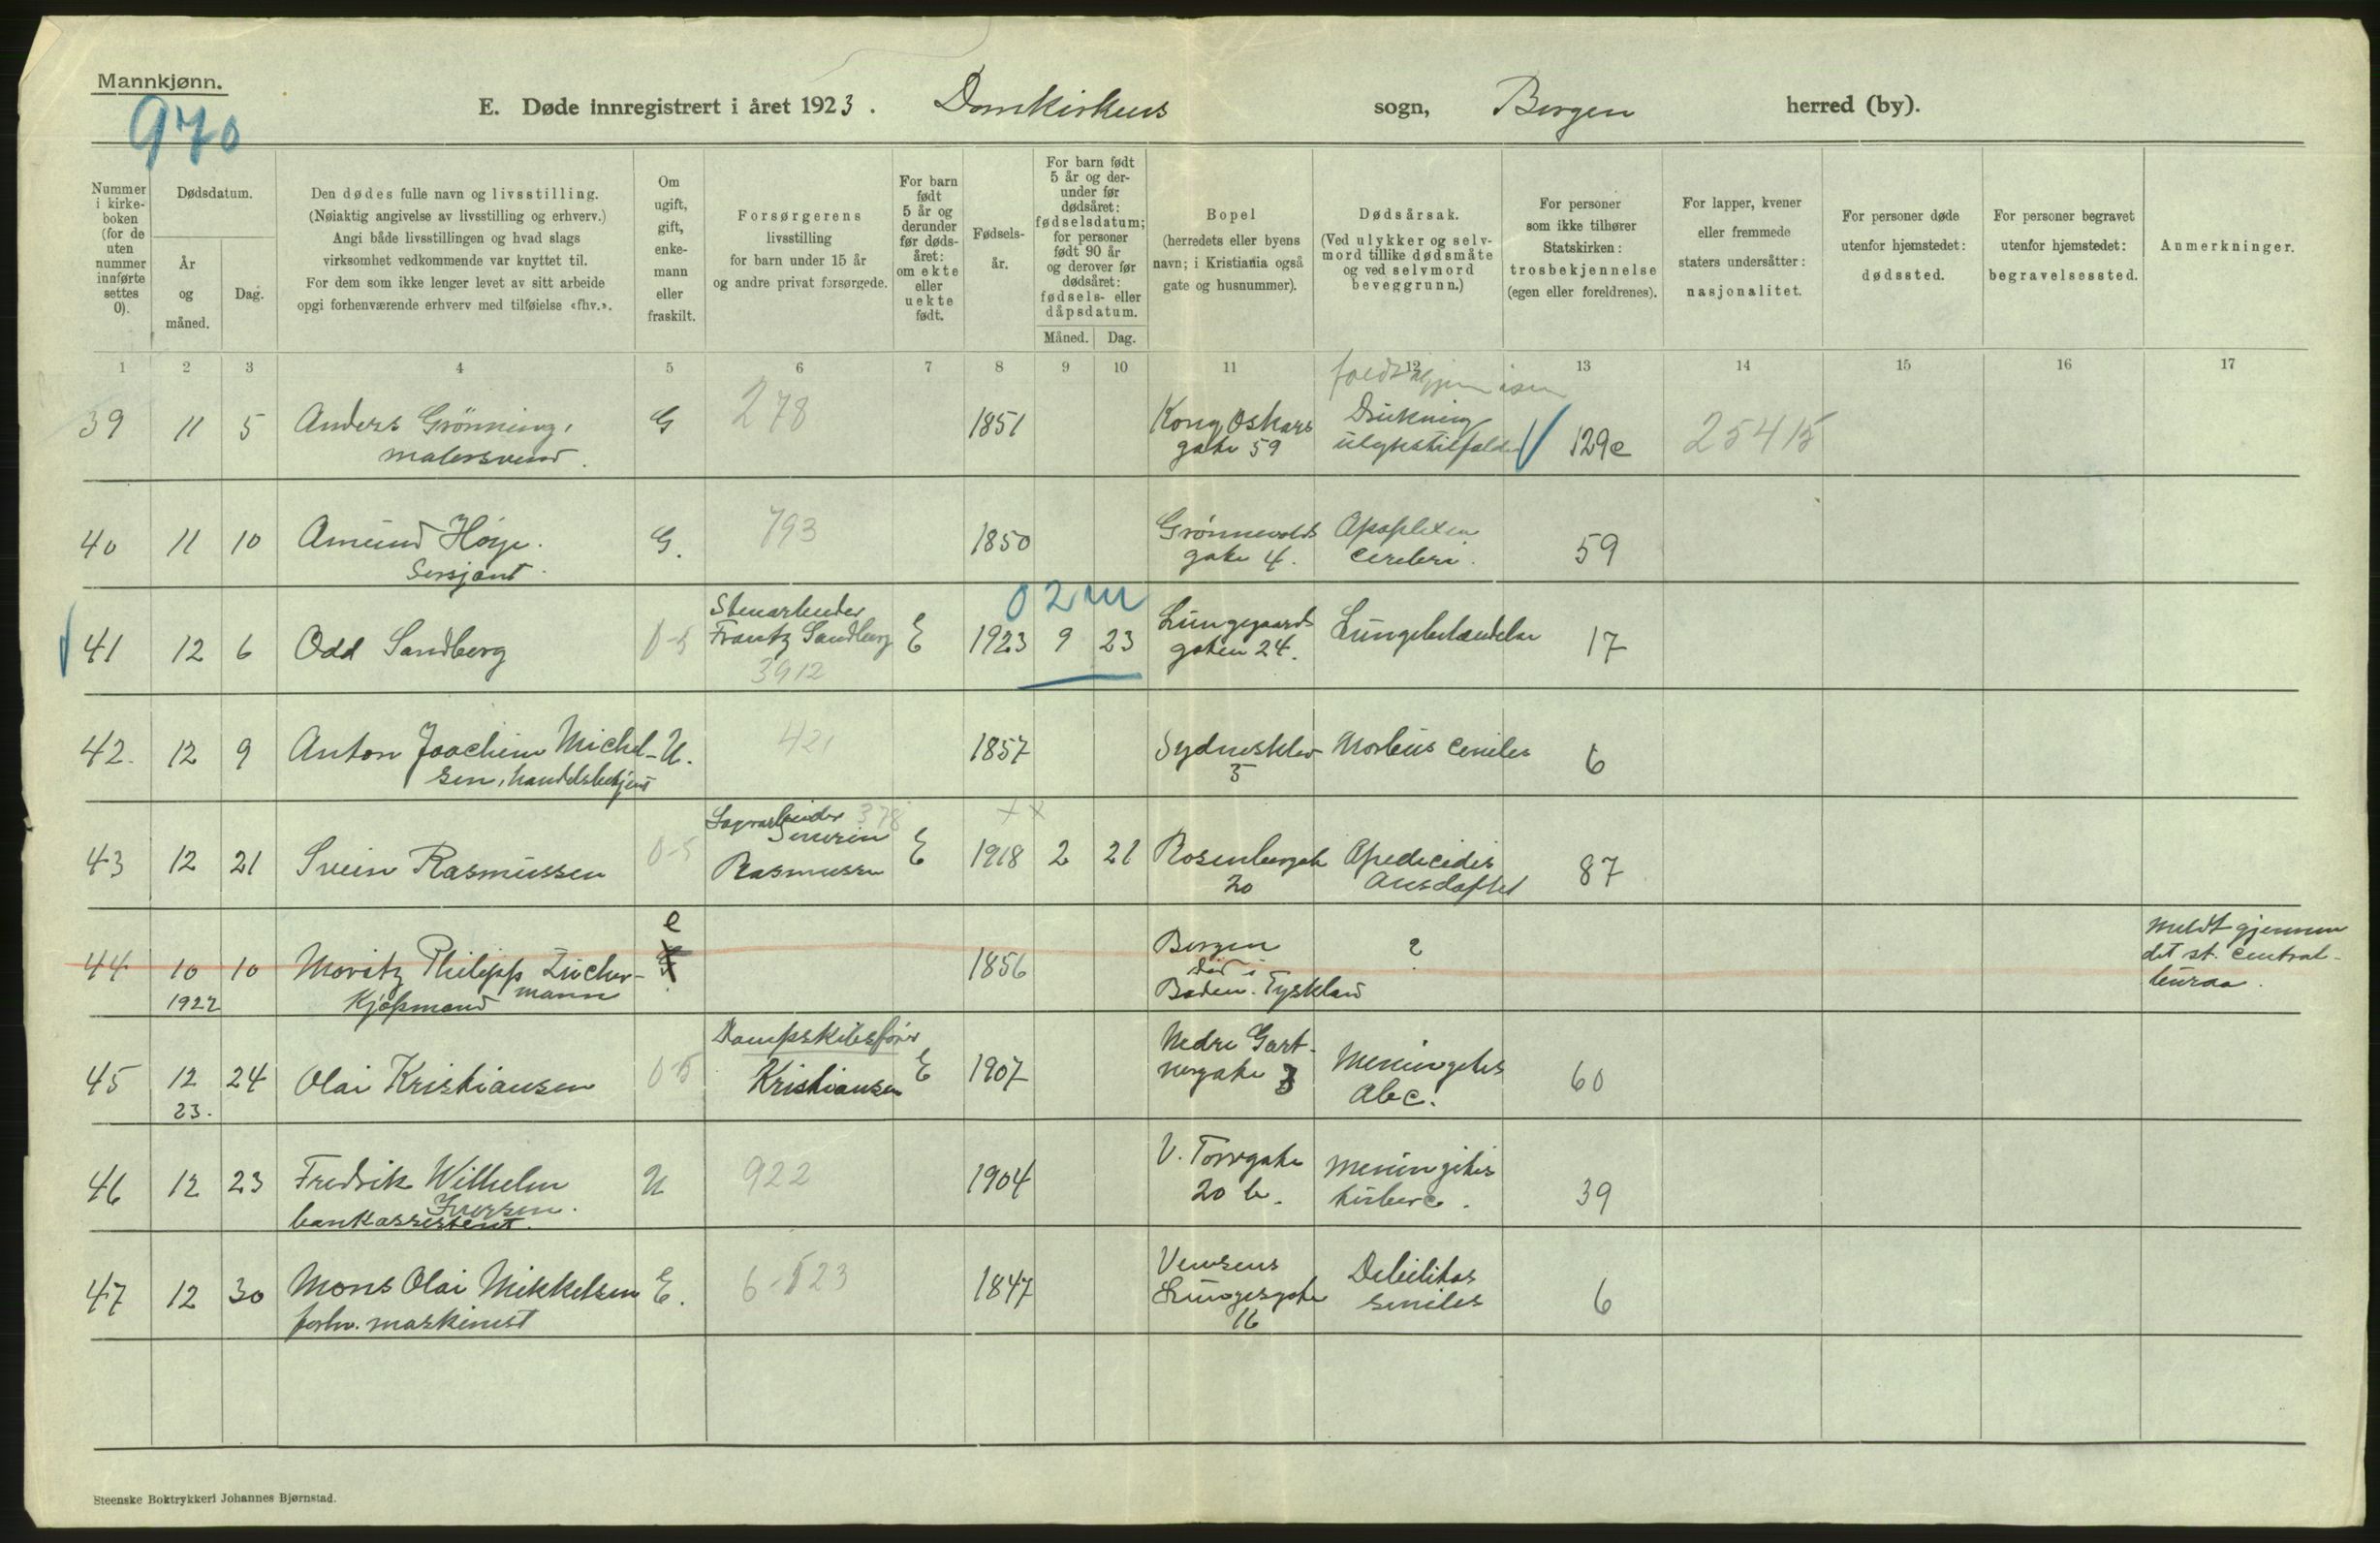 Mannkjønn.
970
E. Døde innregistrert i året 1923. Domkirkens sogn, Bergen herred (by).
Nummer i kirke-boken (for de uten nummer innførte settes 0).
Dødsdatum.
År og måned.
Dag.
Den dødes fulle navn og livsstilling.
(Nøiaktig angivelse av livsstilling og erhverv.)
Angi både livsstillingen og hvad slags
virksomhet vedkommende var knyttet til.
For dem som ikke lenger levet av sitt arbeide
opgi forhenværende erhverv med tilføielse «fhv.».
Om ugift, gift, enke-mann eller fraskilt.
Forsørgerens
livsstilling
for barn under 15 år
og andre privat forsørgede.
For barn født 5 år og derunder før døds-året: om ekte eller uekte født.
Fødsels-år.
For barn født 5 år og der-under før dødsåret: fødselsdatum; for personer født 90 år og derover før dødsåret: fødsels- eller dåpsdatum.
Måned. Dag.
Bopel
(herredets eller byens
navn; i Kristiania også
gate og husnummer).
Dødsårsak.
(Ved ulykker og selv-
mord tillike dødsmåte
og ved selvmord
beveggrunn.)
For personer
som ikke tilhører
Statskirken:
trosbekjennelse
(egen eller foreldrenes).
For lapper, kvener
eller fremmede
staters undersåtter:
nasjonalitet.
For personer døde
utenfor hjemstedet:
dødssted.
For personer begravet
utenfor hjemstedet:
begravelsessted.
Anmerkninger.
1 2 3 4 5 6 7 8 9 10 11 12 13 14 15 16 17
39 11 5 Anders Grönning, G 278 1851 Kong Oskars Drukning 129e 25415
malersvend. gate 59 ulykkestilfælde
40 11 10 Amund Höye. G. 793 1850 Grönnevolds Apoplexia 59
Sersjant. gate 4. cerebri.
02m
Stenarbeider
41 12 6 Odd Sandberg 0-5 Frantz Sandberg E 1923 9 23 Lungegaards Lungebetændelse 17
3912 gaten 24.
42. 12 9 Anton Joachim Michel- U. 421 1857 Sydnesklev Morbus ceniles 6
sen, handelsbetjent 5
378 ++
Severin
43 12 21 Svein Rasmussen 0-5 Rasmussen E 1918 2 21 Rosenbergsgt 87
20
e
44 10 10 Moritz Philipp Zucker- 1856 Bergen ? meldt gjennem
1922 mann død i det st. central-
Kjøpmand Baden. Tyskland bureau.
Dampskibsfører
45 12 24 Olai Kristiansen 0-5 Kristiansen E 1907 Nedre Gart- Meningitis 60
23. nergate 3 Abc.
46 12 23 Fredrik Wilhelm U 922 1904 V. Torvgate Meningitis 39
Iversen. 20 b. tuberc.
bankassistent.
47 12 30 Mons Olai Mikkelsen E. 6-523 1847 Debilitas 6
forhv. maskinist Lungesgate seniles
16
Steenske Boktrykkeri Johannes Bjørnstad.